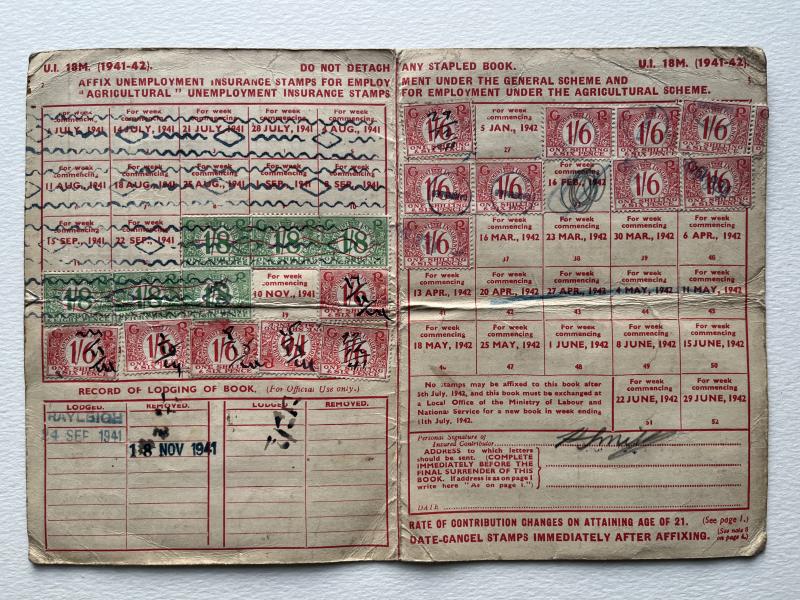 U.I. 18M. (1941-42). DO NOT DETACH
AFFIX UNEMPLOYMENT INSURANCE STAMPS FOR EMPLOY
"AGRICULTURAL" UNEMPLOYMENT INSURANCE STAMPS
For week commencing
JULY, 1941
For week commencing
14 JULY, 1941
For week commencing
21 JULY, 1941
For week commencing
28 JULY, 1941
For week commencing
AUG., 1941
For week commencing
11 AUG., 1941
For week commencing
18 AUG., 1941
For week commencing
25 AUG., 1941
For week commencing
1 SEP., 1941
For week commencing
8 SEP., 1941
For week commencing
15 SEP., 1941
For week commencing
22 SEP., 1941
1/8 1/8 1/8
1/8 1/8 1/8
For week commencing
10 NOV., 1941
19
1/6 1/6 1/6
RECORD OF LODGING OF BOOK. (For Official Use only.)
LODGED. REMOVED. LODGED. REMOVED.
RAYLEIGH
24 SEP 1941
18 NOV 1941
ANY STAPLED BOOK. U.I. 18M. (1941-42)
MENT UNDER THE GENERAL SCHEME AND
FOR EMPLOYMENT UNDER THE AGRICULTURAL SCHEME.
G R 1/6 ONE SHILLING SIX PENCE
For week commencing
5 JAN., 1942
27
1/6 1/6 1/6
1/6 1/6
For week commencing
16 FEB., 1942
1/6 1/6
G R 1/6 ONE SHILLING SIX PENCE
For week commencing
16 MAR., 1942
37
For week commencing
23 MAR., 1942
38
For week commencing
30 MAR., 1942
39
For week commencing
6 APR., 1942
40
For week commencing
13 APR., 1942
41
For week commencing
20 APR., 1942
42
For week commencing
27 APR., 1942
43
For week commencing
4 MAY, 1942
44
For week commencing
11 MAY, 1942
45
For week commencing
18 MAY, 1942
46
For week commencing
25 MAY, 1942
47
For week commencing
1 JUNE, 1942
48
For week commencing
8 JUNE, 1942
49
For week commencing
15 JUNE, 1942
50
No stamps may be affixed to this book after
5th July, 1942, and this book must be exchanged at
a Local Office of the Ministry of Labour and
National Service for a new book in week ending
11th July, 1942.
For week commencing
22 JUNE, 1942
51
For week commencing
29 JUNE, 1942
52
Personal Signature of
Insured Contributor
ADDRESS to which letters
should be sent. (COMPLETE
IMMEDIATELY BEFORE THE
FINAL SURRENDER OF THIS
BOOK. If address is as on page 1
write here "As on page 1.")
DATE
RATE OF CONTRIBUTION CHANGES ON ATTAINING AGE OF 21. (See page 1.)
DATE-CANCEL STAMPS IMMEDIATELY AFTER AFFIXING. (See note 8 on page 4.)